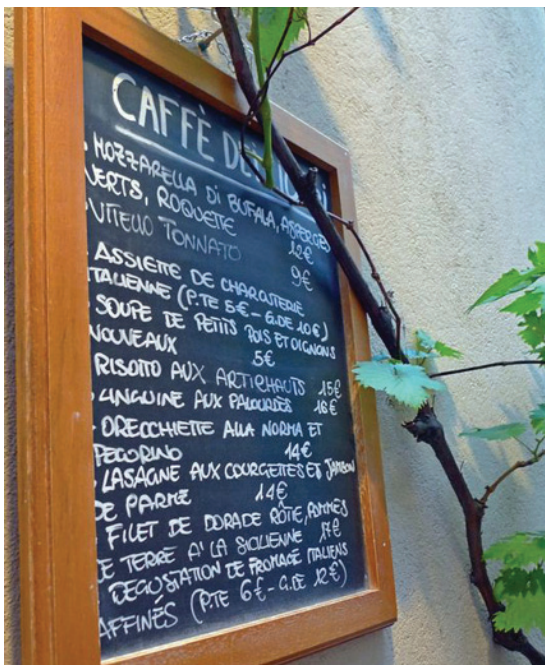 CAFFÈ
- MOZZARELLA DI BUFALA, ASPERGES
VERTS, ROQUETTE 12€
- VITELLO TONNATO 9€
- ASSIETTE DE CHARCUTERIE
ITALIENNE (P.TE 5€ - G.DE 10€)
- SOUPE DE PETITS POIS ET OIGNONS
NOUVEAUX 5€
- RISOTTO AUX ARTICHAUTS 15€
- LINGUINE AUX PALOURDES 16€
- ORECCHIETTE ALLA NORMA ET
PECORINO 14€
- LASAGNE AUX COURGETTES ET JAMBON
DE PARME 14€
- FILET DE DORADE RÔTIE, POMMES
DE TERRE A' LA SICILIENNE 17€
- DEGOSTATION DE FROMAGE ITALIENS
AFFINÉS (P.TE 6€ - G.DE 12€)